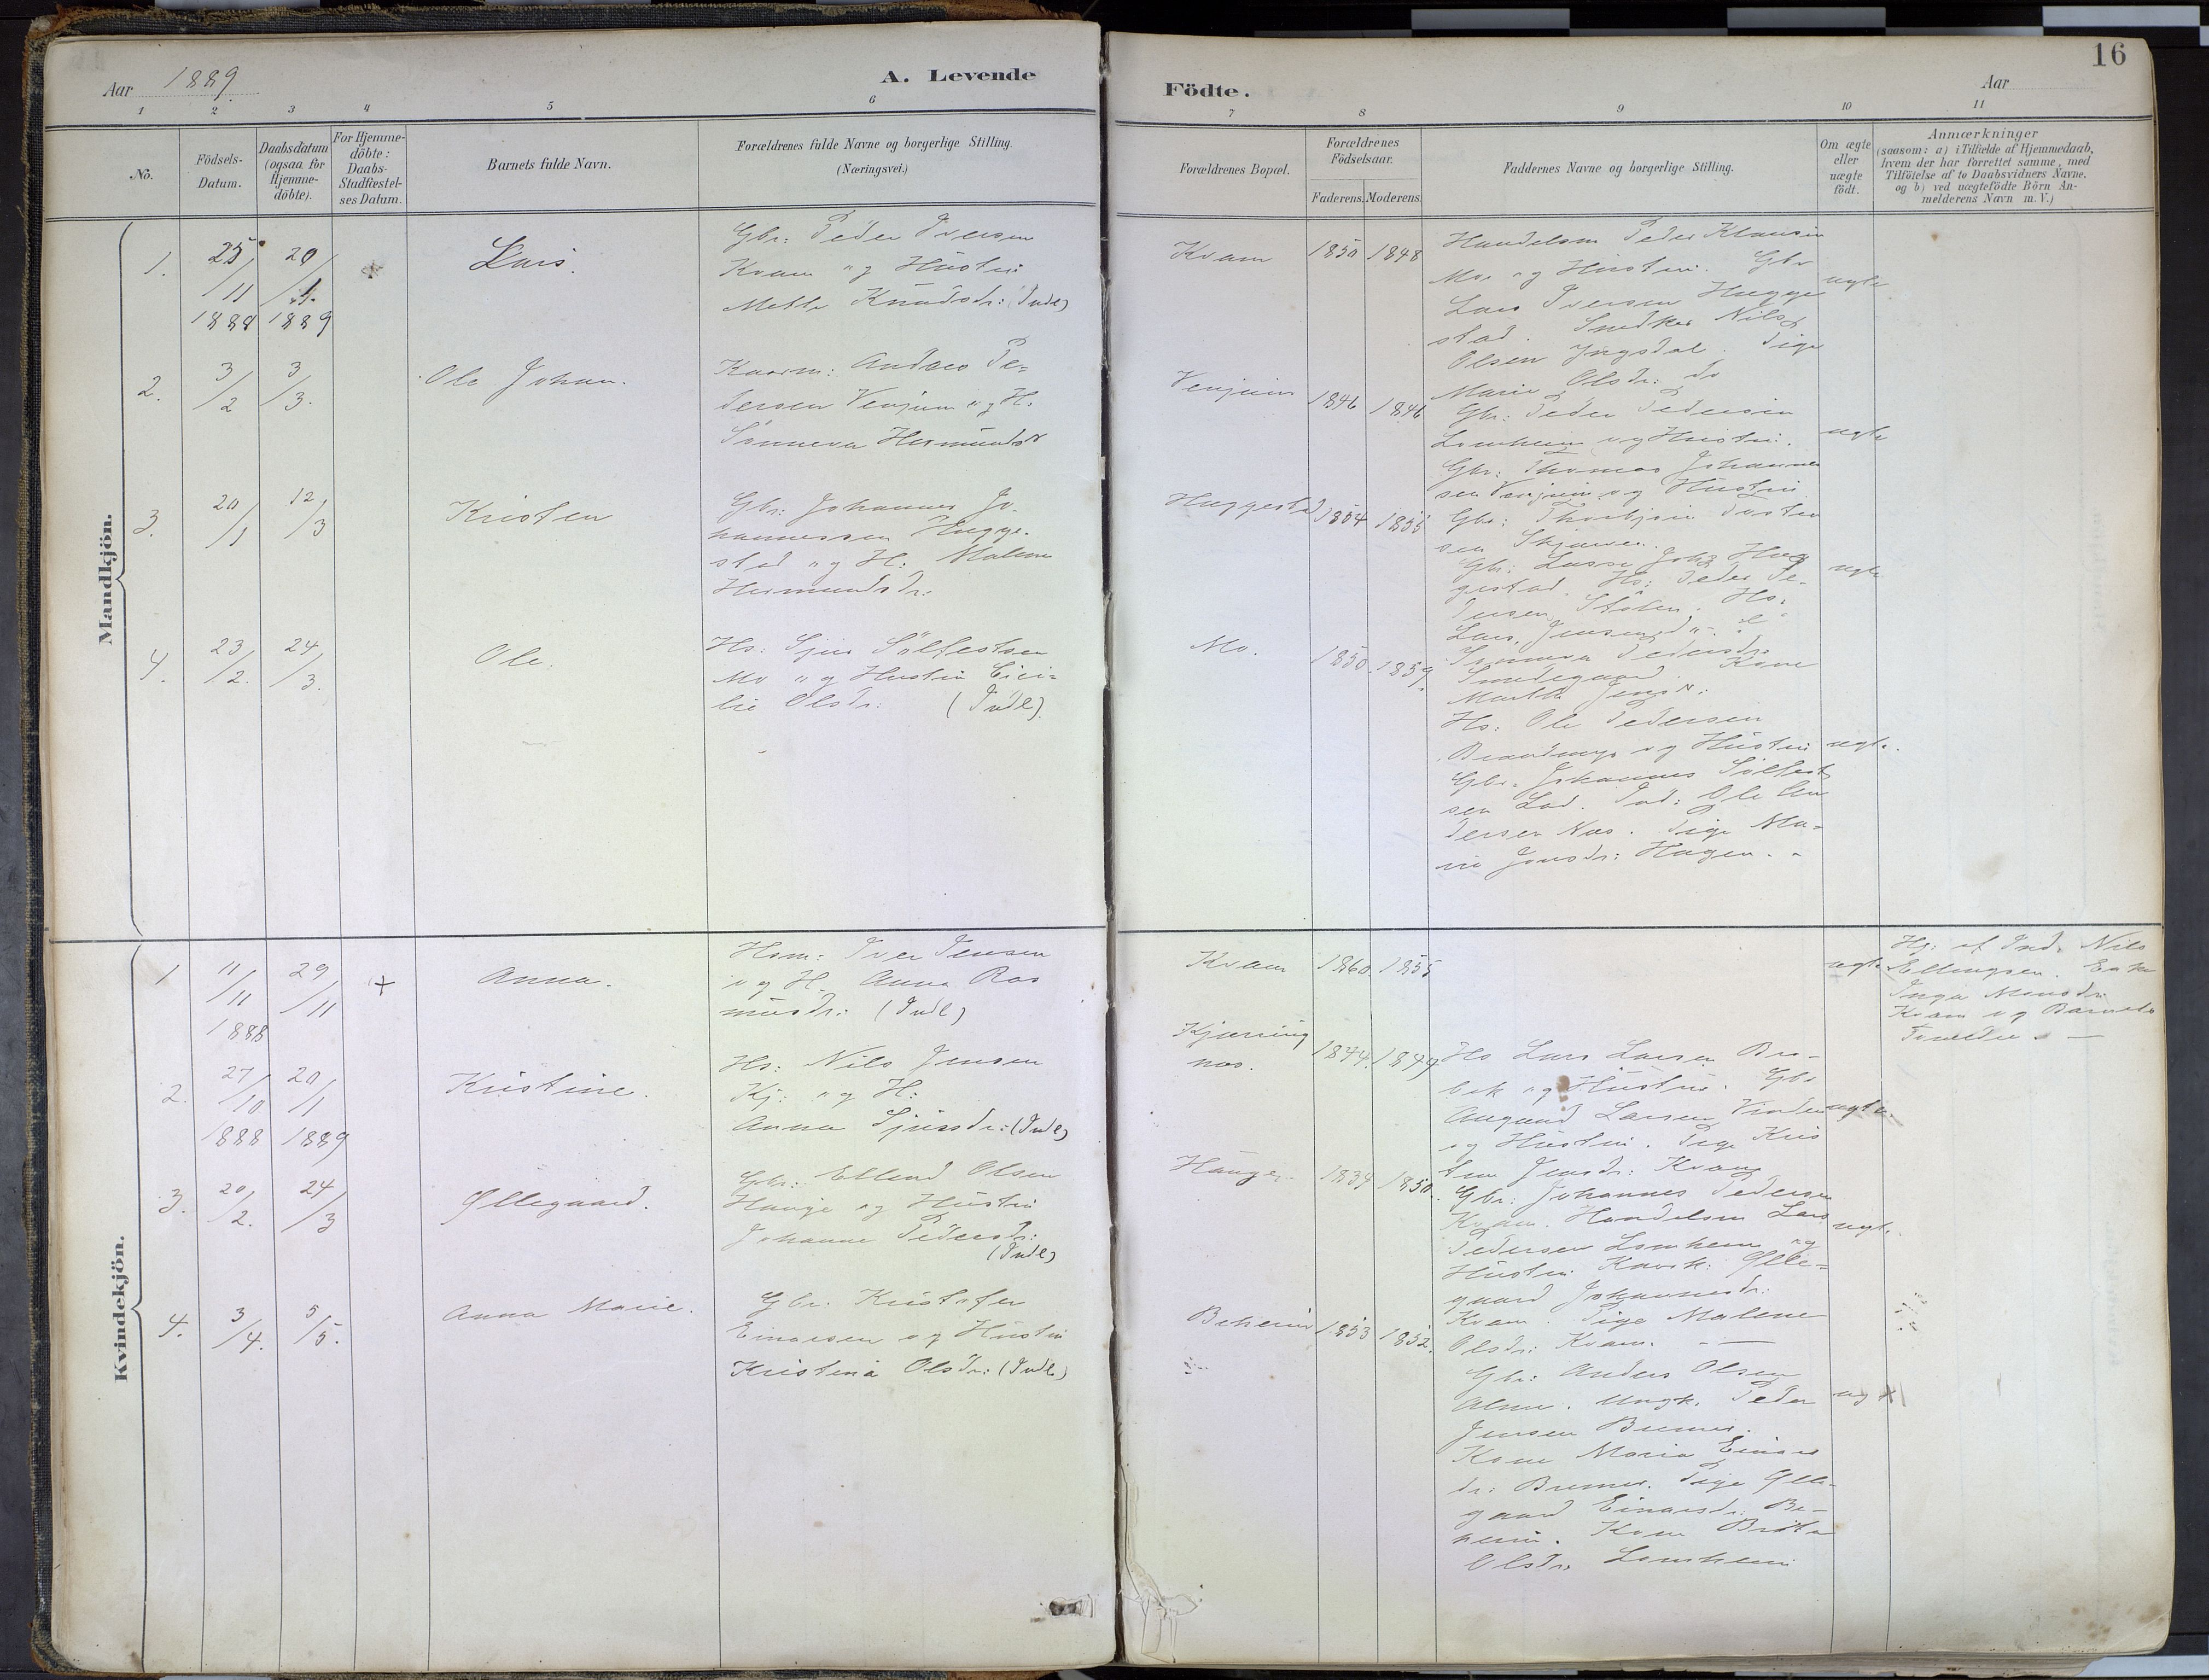 Aar 1889.
A. Levende
Födte.
Aar
16
1
2
3
4
5
6
7
8
9
10
11
No.
Födsels-
Datum.
Daabsdatum
(ogsaa for
Hjemme-
döbte).
For Hjemme-
döbte:
Daabs-
Stadfæstel-
ses Datum.
Barnets fulde Navn.
Forældrenes fulde Navne og borgerlige Stilling.
(Næringsvei.)
Forældrenes Bopæl.
Forældrenes
Födselsaar.
Faderens. Moderens.
Faddernes Navne og borgerlige Stilling.
Om ægte
eller
uægte
födt.
Anmærkninger
(saasom: a) i Tilfælde af Hjemmedaab,
hvem der har forrettet samme, med
Tilföielse af to Daabsvidners Navne.
og b) ved uægtefödte Börn An-
melderens Navn m. V.)
Mandkjön.
1.
25/11 1888
20/1. 1889
Lars.
Gbr: Peder Iversen
Kvam og Hustru
Mette Knudsdr: (Indl)
Kvam
1850
1848
Handelsm Peder Klausen
Mo og Hustru. Gbr
Lars Iversen Hegge
stad. Snedker Nils
Olsen Yngsdal. Pige
Marie Olsdr: do
ægte
2.
3/2
3/3.
Ole Johan.
Kaarm: Andreas Pe-
dersen Venjum og H.
Sönneva Hermundsdr
Venjum
1846
1846
Gbr: Peder Pedersen
Lomheim og Hustru.
Gbr: Thomas Johannes
sen Venjum og Hustru
ægte
3.
20/1
12/3
Kristen
Gbr: Johannes Jo-
hannessen Hegge-
stad og H: Malene
Hermundsdr:
Heggestad
1854
1855
Gbr: Thorbjörn Torsten
sen
Gbr: Lasse Johs Heg
gestad. Hs: Peder Pe-
dersen Stölen. Hs:
Lars Jensen
Synneva Pedersdr
Smedegaard. Kone
Martha Jensdr:
ægte
4.
23/2.
24/3.
Ole.
Hs: Sjur Sölfestsen
Mo og Hustru Cici-
lie Olsdr: (Indl).
Mo.
1850.
1859.
Hs: Ole Pedersen
og Hustru
Gbr. Johannes Sölfest
sen Lad. Ind: Ole An
dersen Næs. Pige Ma-
rie Jonsdr: Hagen. -
ægte.
Kvindekjön.
1
11/11 1888
29/11
+
Anna.
Hsm: Iver Jensen
og H. Anna Ras
musdr: (Indl)
Kvam
1860.
1855
ægte
Hj: af Ind. Nils
Ellingsen. Enke
Inga Monsdr:
Kvam og Barnets
Forældre. —
2.
27/10 1888
20/1 1889
Kristine.
Hs: Nils Jensen
Kj: og H:
Anna Sjursdr: (Indl)
Kjærring
næs.
1844.
1849
Hs Lars Larsen Bro-
bæk og Hustru. Gbr
Augund Larsen
og Hustru. Pige Kris
tine Jensdr: Kvam
ægte.
3.
20/2.
24/3
Øllegaard.
Gbr: Ellend Olsen
Hauge og Hustru
Johanne Pedersdr:
(Indl)
Hauge.
1839
1850.
Gbr: Johannes Pedersen
Kvam. Handelsm Lars
Pedersen Lomheim og
Hustru. Kaark: Ølle-
gaard Johannesdr:
Kvam. Pige Malene
Olsdr: Kvam. - —
ægte.
4.
3/4.
5/5.
Anna Marie.
Gbr: Kristofer
Einarsen og Hustru
Kristina Olsdr: (Indl)
Beheim
1853
1852.
Gbr: Anders Olsen
Alme. Ungk. Peder
Jensen Bremer.
Kone Maria Einars
dr: Bremer. Pige Ølle-
gaard Einarsdr: Be-
heim. Kone Brita
Olsdr: Lomheim